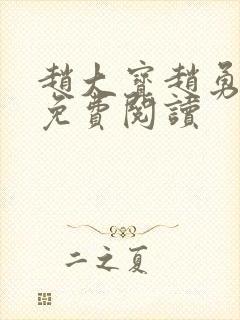 趙大寶趙勇
免費閱讀
二之夏